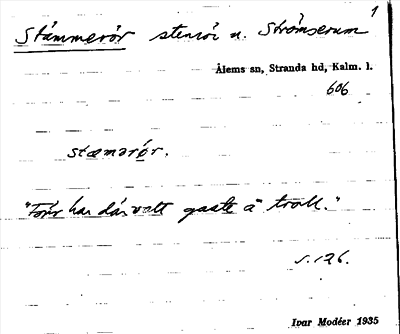 1
Stämmerör stenrör n. Strömserum
Ålems sn, Stranda hd, Kalm. l.
606
stæmərør.
"Förr har där vatt gaste å troll."
s. 126.
Ivar Modéer 1935